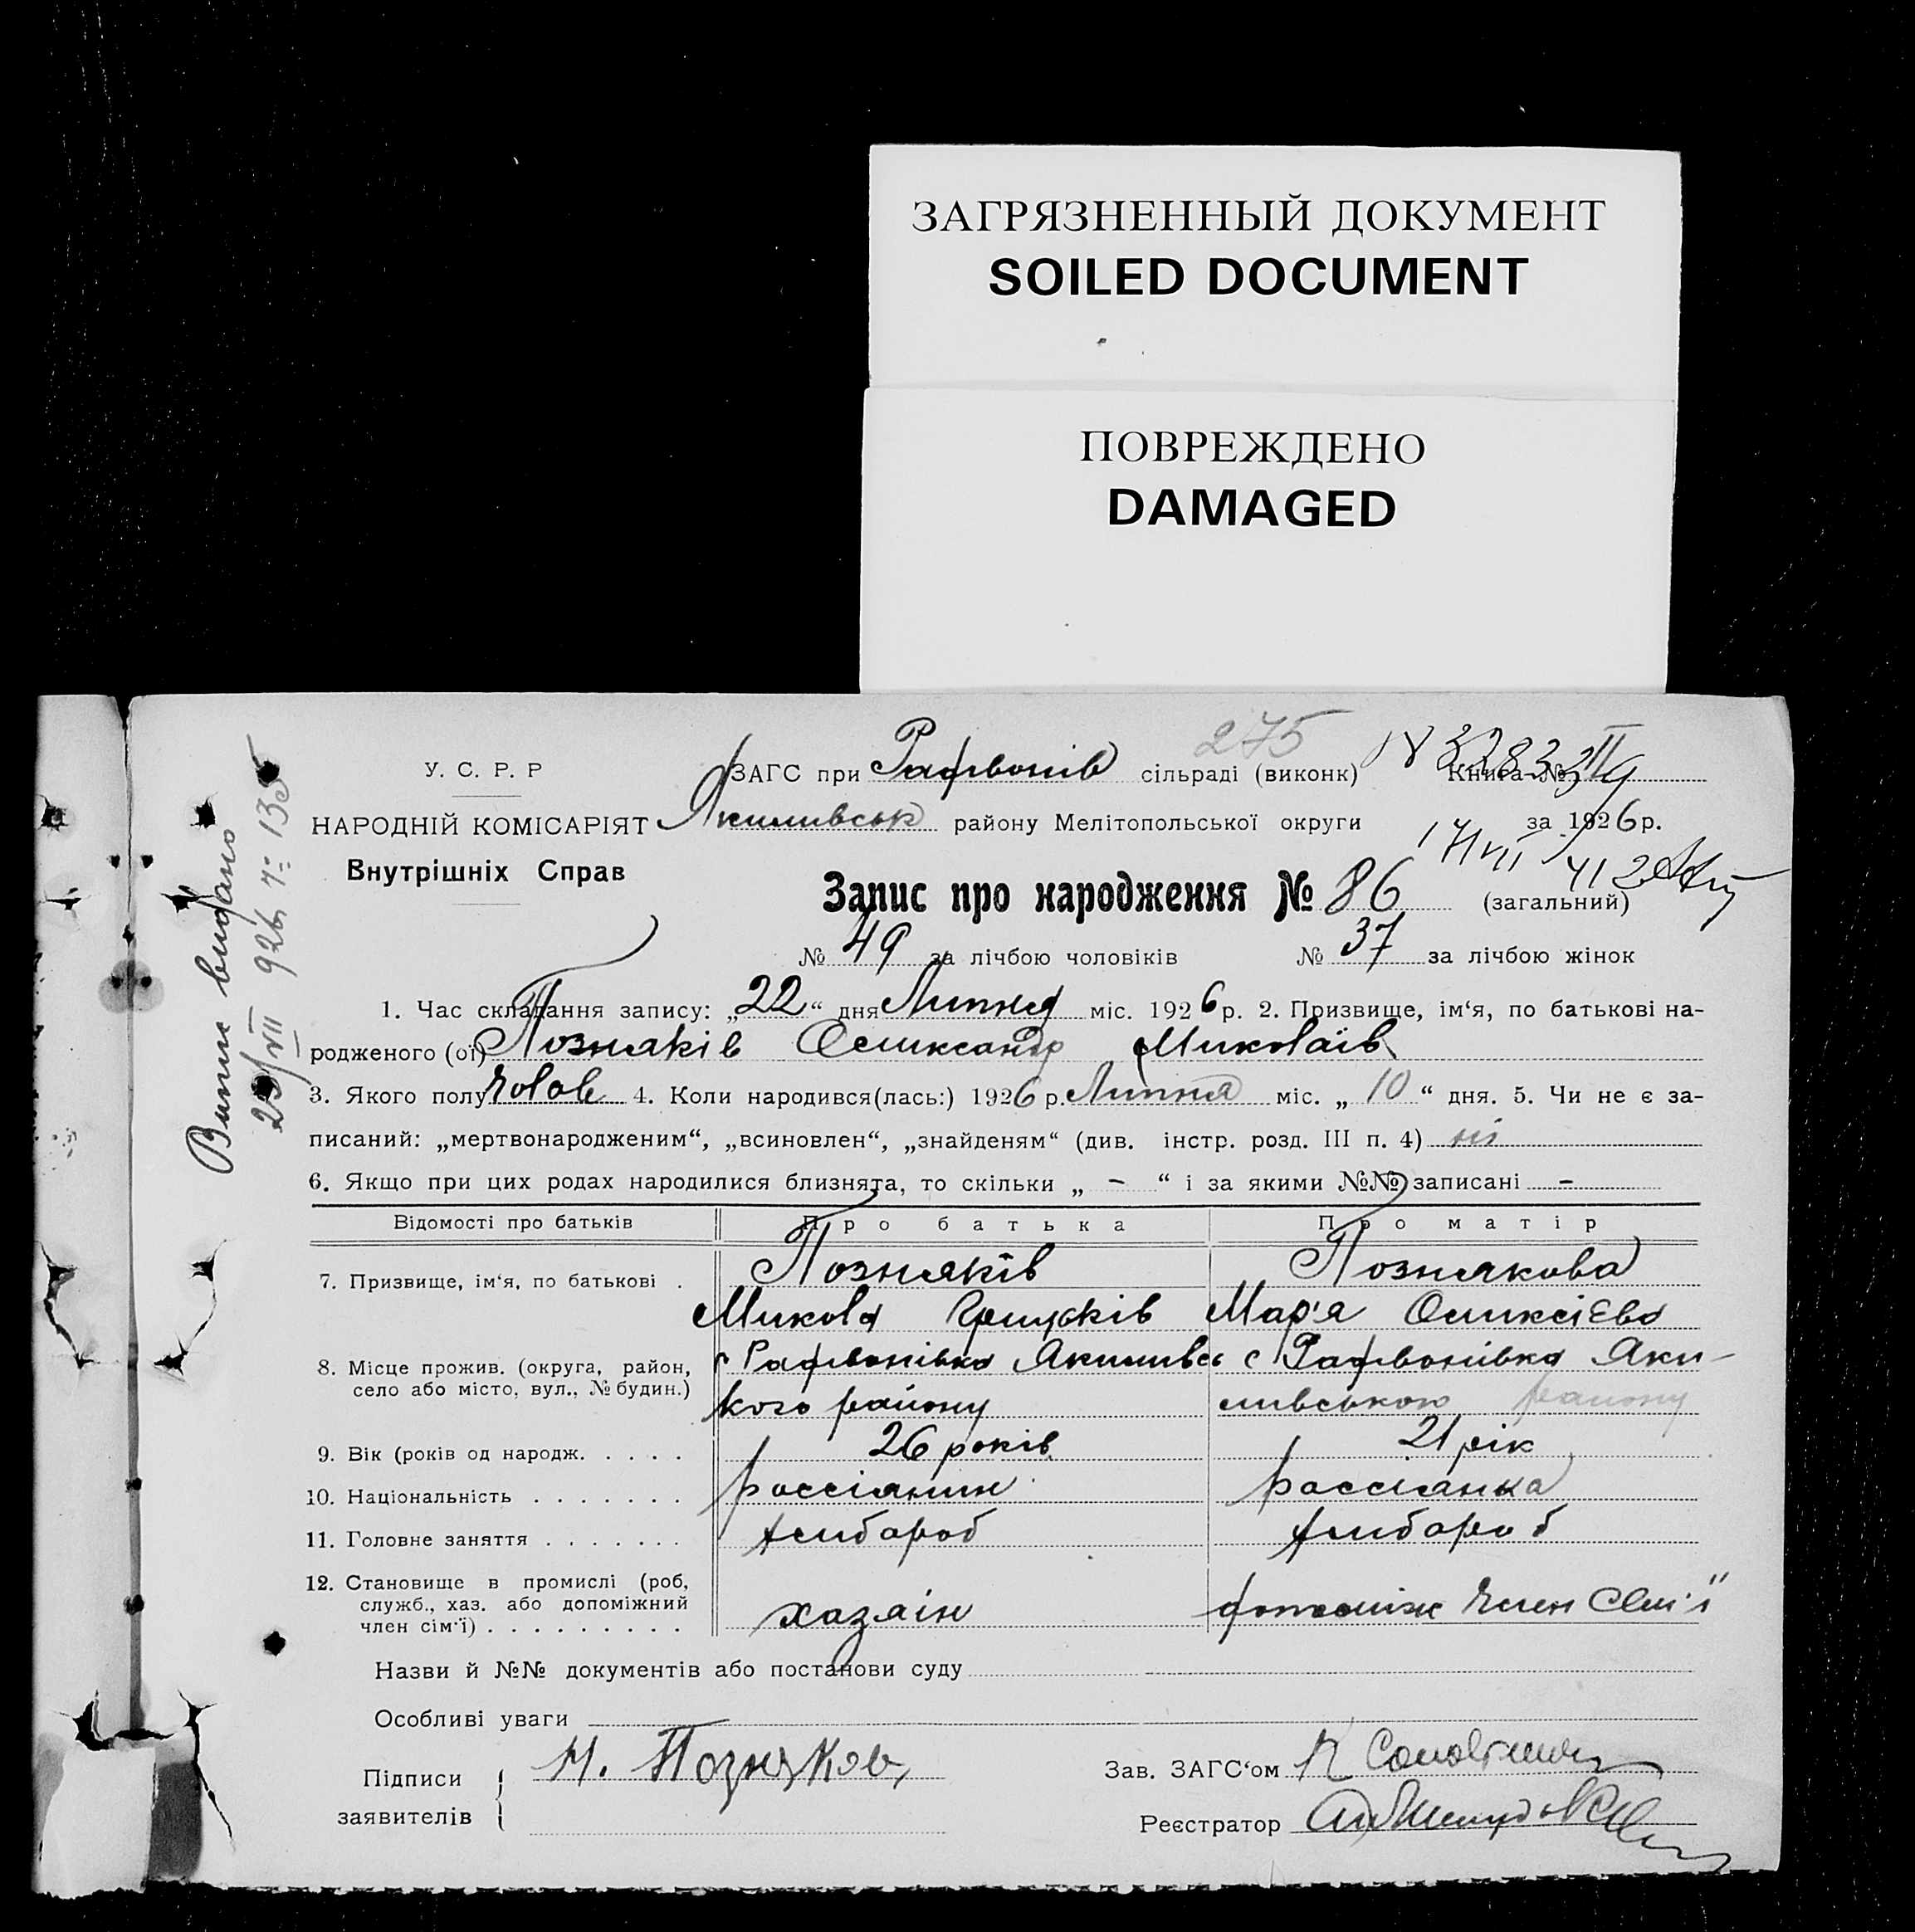 ЗАГРЯЗНЕННЫЙ ДОКУМЕНТ
SOILED DOCUMENT
ПОВРЕЖДЕНО
DAMAGED
275
У. С. Р. Р
ЗАГС при сільраді (виконк) Книга №
НАРОДНІЙ КОМІСАРІЯТ Якимивськ району Мелітопольської округи за 1926 р.
Внутрішніх Справ
Запис про народження № 86 (загальний)
№ 49 за лічбою чоловіків № 37 за лічбою жінок
Випис видано
23/VII 926 г. 135
1. Час складання запису: „22“ дня Липня міс. 1926 р. 2. Призвище, ім‘я, по батькові на-
родженого (ої) Позняків Олександр Миколаїв
3. Якого полу чолов 4. Коли народився(лась:) 1926 р. Липня міс. „ 10 “ дня. 5. Чи не є за-
писаний: „мертвонародженим“, „всиновлен“, „знайденям“ (див. інстр. розд. III п. 4) ні
6. Якщо при цих родах народилися близнята, то скільки „ – “ і за якими №№ записані –
Відомості про батьків Про батька Про матір
7. Призвище, ім‘я, по батькові . Позняків Познякова
Микола Мар'я Оликсієва
8. Місце прожив. (округа, район, село або місто, вул., № будин.) с Якимивсь с Яки-
кого району мивського району
9. Вік (років од народж. . . . . 26 років 21 рік
10. Національність . . . . . . . россіянин россіянка
11. Головне заняття . . . . . . . хлибороб хлибороб
12. Становище в промислі (роб,
служб., хаз. або допоміжний
член сім‘ї) . . . . . . . . . хазяін допоміж член сем'ї
Назви й №№ документів або постанови суду
Особливі уваги
Підписи заявителів Н. Позняков Зав. ЗАГС‘ом
Реєстратор